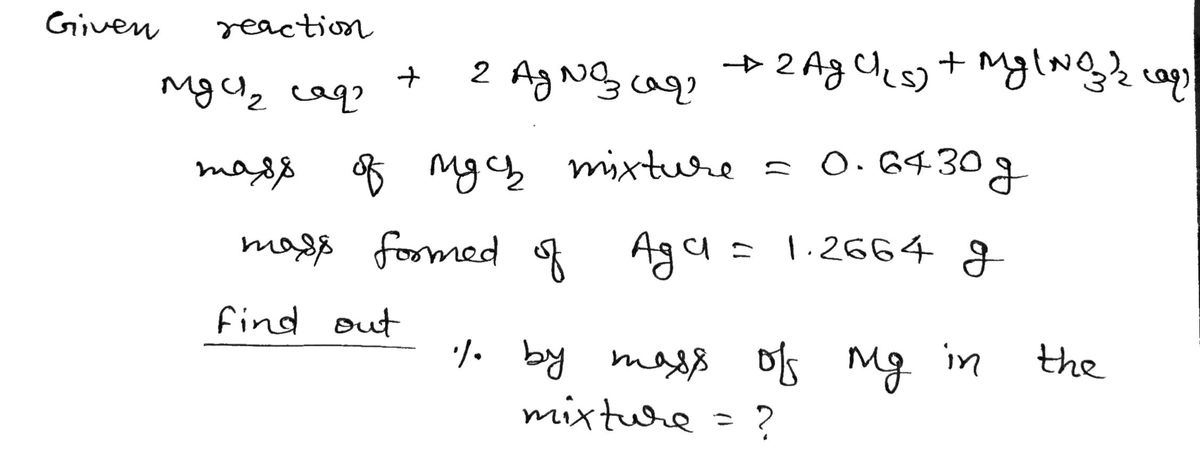 Given reaction
MgCl₂ (aq) + 2 AgNO₃ (aq) → 2 AgCl(s) + Mg(NO₃)₂ (aq)
mass of MgCl₂ mixture = 0.6430 g
mass formed of AgCl = 1.2664 g
find out
% by mass of Mg in the
mixture = ?